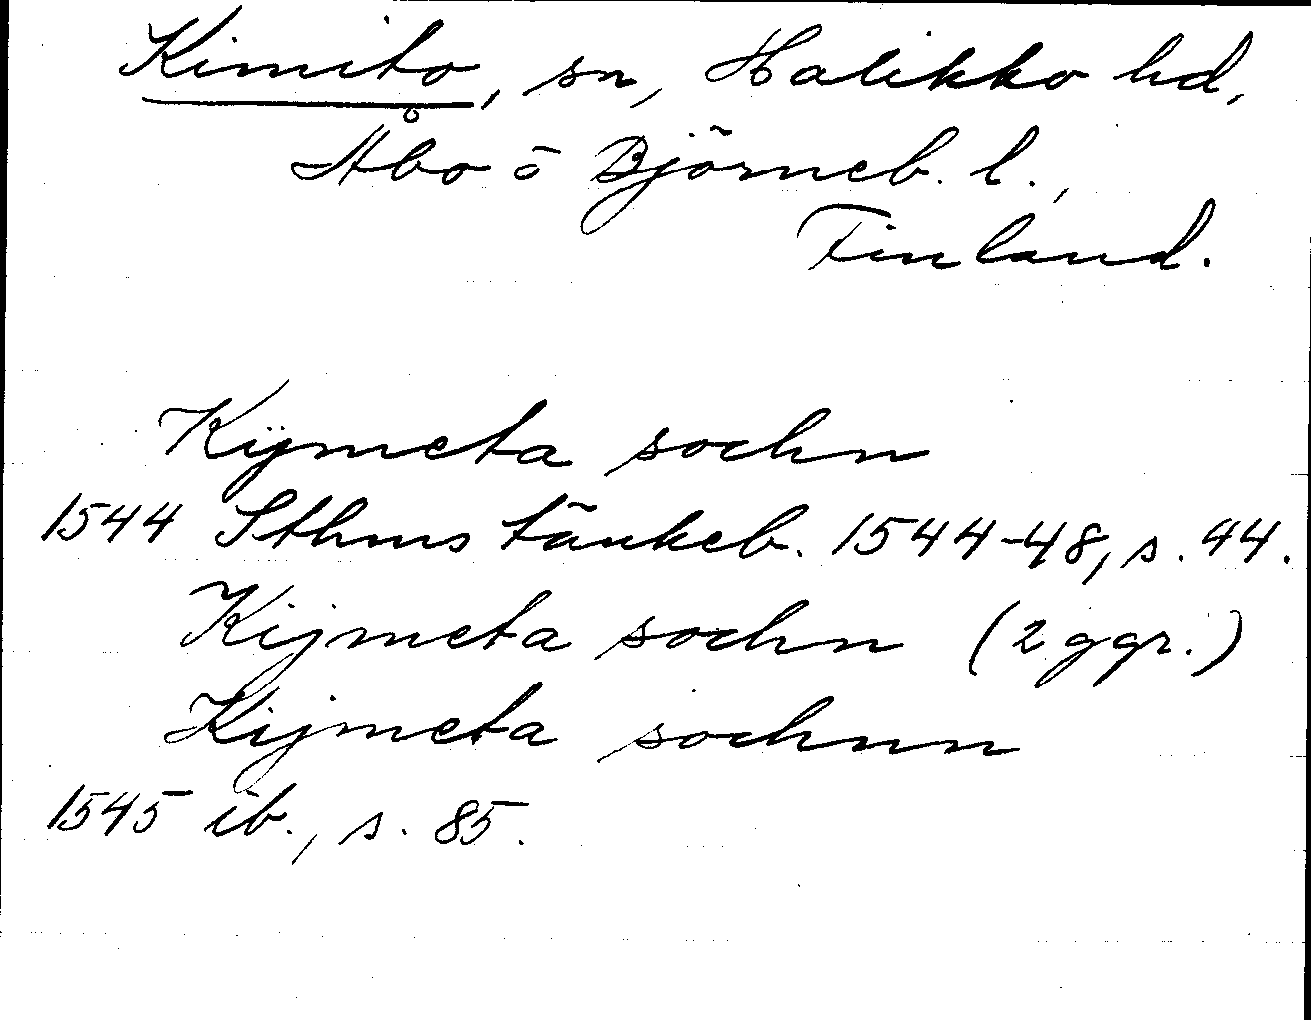 Kimito, sn, Halikko hd,
Åbo o Björneb. l.,
Finland.
Kÿmeta sochn
1544 Sthms tänkeb. 1544-48, s. 44.
Kijmeta sochn (2 ggr.)
Kijmeta sochnn
1545 ib., s. 85.